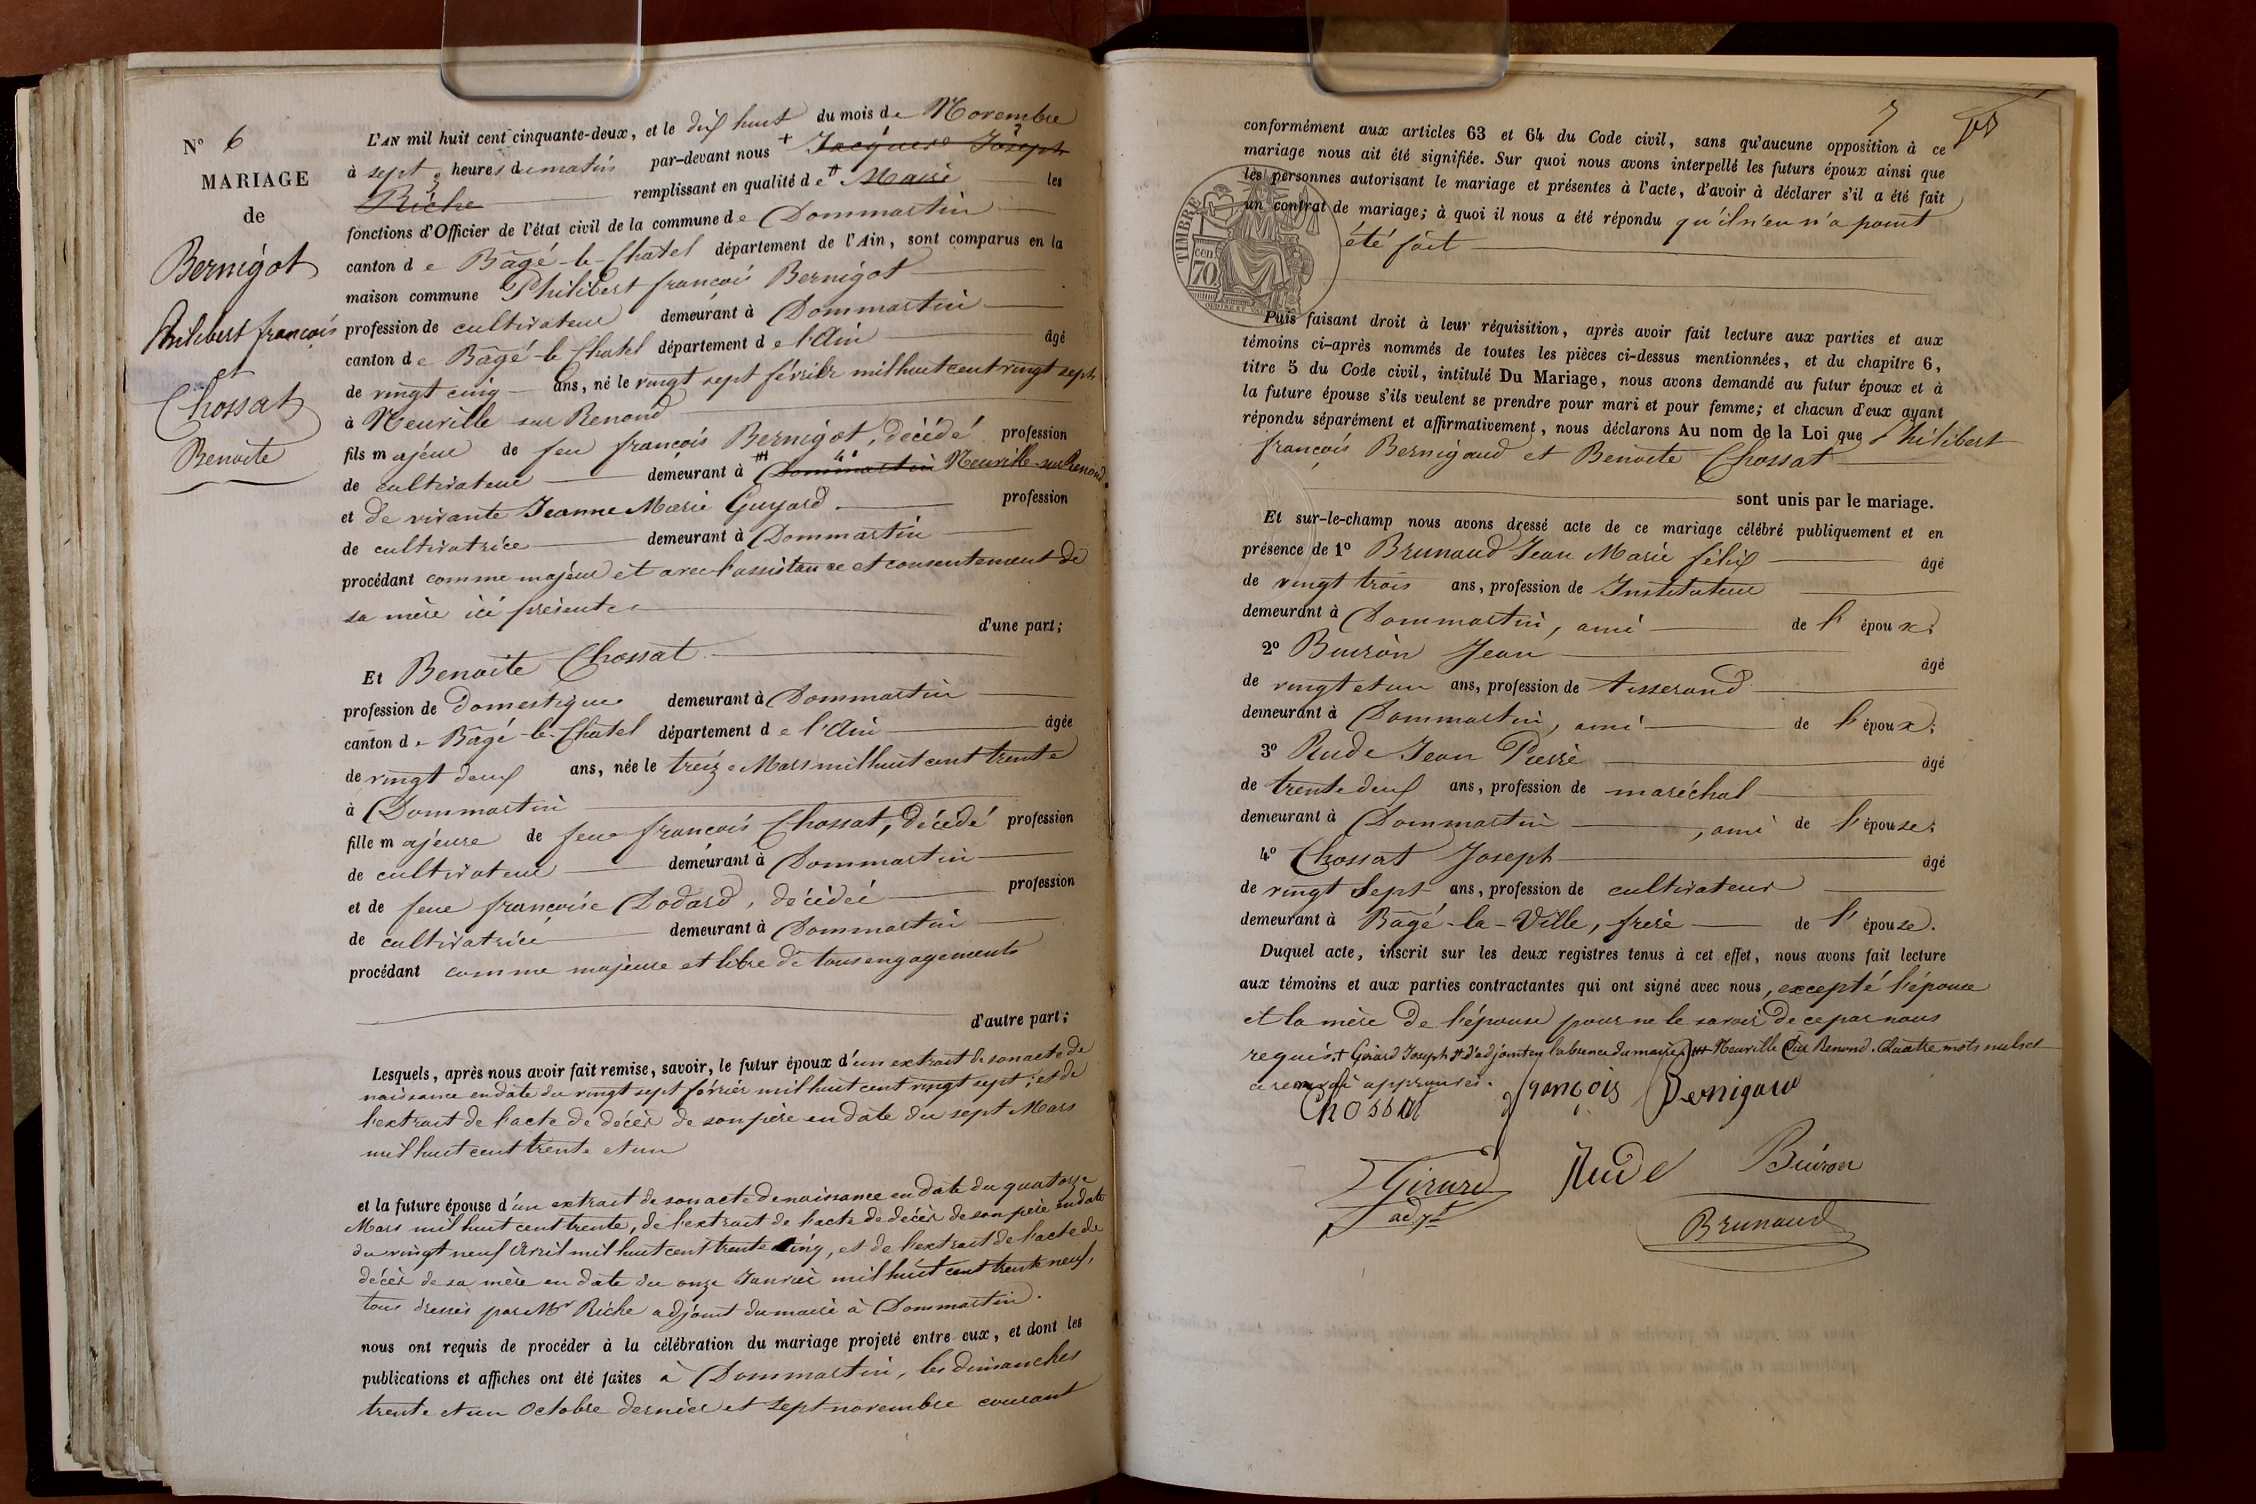 N° 6
MARIAGE
de
Bernigot
Philibert françois
et
Chossat
Benoite
L'AN mil huit cent cinquante-deux, et le dix huit du mois de Novembre
à sept heures du matin par-devant nous + Jacques Joseph
Riche remplissant en qualité de # Maire les
fonctions d'Officier de l'état civil de la commune de Dommartin
canton de Bâgé-le-Chatel département de l'Ain, sont comparus en la
maison commune Philibert françois Bernigot
profession de cultivateur demeurant à Dommartin
canton de Bâgé-le-Chatel département de l'Ain âgé
de vingt cinq ans, né le vingt sept février mil huit cent vingt sept
à Neuville sur Renond
fils majeur de feu françois Bernigot, décédé profession
de cultivateur demeurant à ### Dommartin Neuville-sur Renond
et de vivante Jeanne Marie Guyard profession
de cultivatrice demeurant à Dommartin
procédant comme majeur et avec l'assistance et consentement de
sa mère ici présente
d'une part;
Et Benoite Chossat
profession de domestique demeurant à Dommartin
canton de Bâgé-le-Chatel département de l'Ain âgée
de vingt deux ans, née le treize Mars mil huit cent trente
à Dommartin
fille majeure de feu françois Chossat, décédé profession
de cultivateur demeurant à Dommartin
et de feue françoise Dodard, décédée profession
de cultivatrice demeurant à Dommartin
procédant comme majeure et libre de tous engagements
d'autre part;
Lesquels, après nous avoir fait remise, savoir, le futur époux d'un extrait de son acte de
naissance en date du vingt sept février mil huit cent vingt sept; et de
l'extrait de l'acte de décès de son père en date du sept Mars
mil huit cent trente et un
et la future épouse d'un extrait de son acte de naissance en date du quatorze
Mars mil huit cent trente, de l'extrait de l'acte de décès de son père en date
du vingt neuf Avril mil huit cent trente cinq, et de l'extrait de l'acte de
décès de sa mère en date du onze Janvier mil huit cent trente neuf,
tous dressés par Mr Riche adjoint du maire à Dommartin.
nous ont requis de procéder à la célébration du mariage projeté entre eux, et dont les
publications et affiches ont été faites à Dommartin, les dimanches
trente et un Octobre dernier et sept novembre courant
7
conformément aux articles 63 et 64 du Code civil, sans qu'aucune opposition à ce
mariage nous ait été signifiée. Sur quoi nous avons interpellé les futurs époux ainsi que
les personnes autorisant le mariage et présentes à l'acte, d'avoir à déclarer s'il a été fait
un contrat de mariage; à quoi il nous a été répondu qu'il n'en n'a point
été fait
TIMBRE
cen
70
Puis faisant droit à leur réquisition, après avoir fait lecture aux parties et aux
témoins ci-après nommés de toutes les pièces ci-dessus mentionnées, et du chapitre 6,
titre 5 du Code civil, intitulé Du Mariage, nous avons demandé au futur époux et à
la future épouse s'ils veulent se prendre pour mari et pour femme; et chacun d'eux ayant
répondu séparément et affirmativement, nous déclarons Au nom de la Loi que Philibert
françois Bernigaud et Benoite Chossat
sont unis par le mariage.
Et sur-le-champ nous avons dressé acte de ce mariage célébré publiquement et en
présence de 1° Brunaud Jean Marie félix âgé
de vingt trois ans, profession de Instituteur
demeurant à Dommartin, ami de l'époux;
2° Buiron Jean âgé
de vingt et un ans, profession de tisserand
demeurant à Dommartin, ami de l'époux;
3° Rude Jean Pierre âgé
de trente deux ans, profession de maréchal
demeurant à Dommartin, ami de l'épouse;
4° Chossat Joseph âgé
de vingt Sept ans, profession de cultivateur
demeurant à Bâgé-la-Ville, frère de l'épouse.
Duquel acte, inscrit sur les deux registres tenus à cet effet, nous avons fait lecture
aux témoins et aux parties contractantes qui ont signé avec nous, excepté l'épouse
et la mère de l'épouse pour ne le savoir de ce par nous
requis. + Girard Joseph # d'adjoint en l'absence du maire ### Neuville Sur Renond. Quatre mots nuls et
a renvoi approuvés.
Chossat françois Bernigaud
Girard Rude Buiron
adjt Brunaud